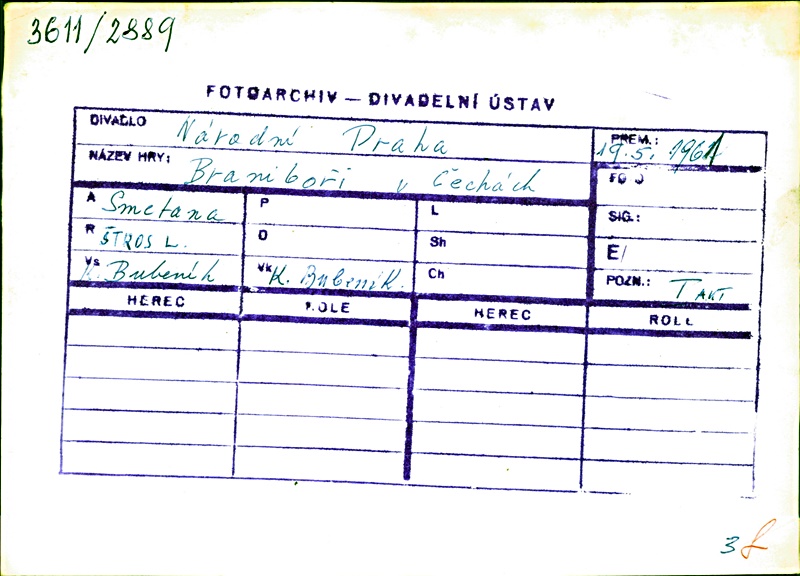 3611/2889
FOTOARCHIV — DIVADELNÍ ÚSTAV
DIVADLO Národní Praha
PREM.: 19.5. 1961
NÁZEV HRY: Braniboři v Čechách
FOTO
A Smetana P L
SIG.:
R ŠTROS L. D Sh
E/
Vs K. Bubeník Vk K. Bubeník. Ch
POZN.:
HEREC ROLE HEREC ROLE
3